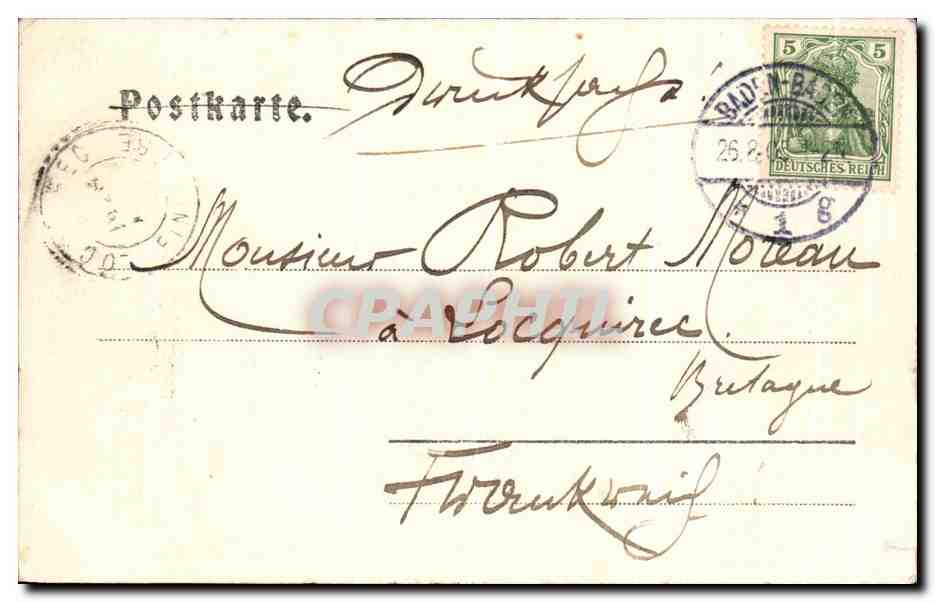 Postkarte. Drucksache!
5 5
DEUTSCHES REICH
BADEN-BADEN
26.8.
1 g
Monsieur Robert Moreau
CPAPHIL
à Locquirec.
Bretagne
Frankreich!